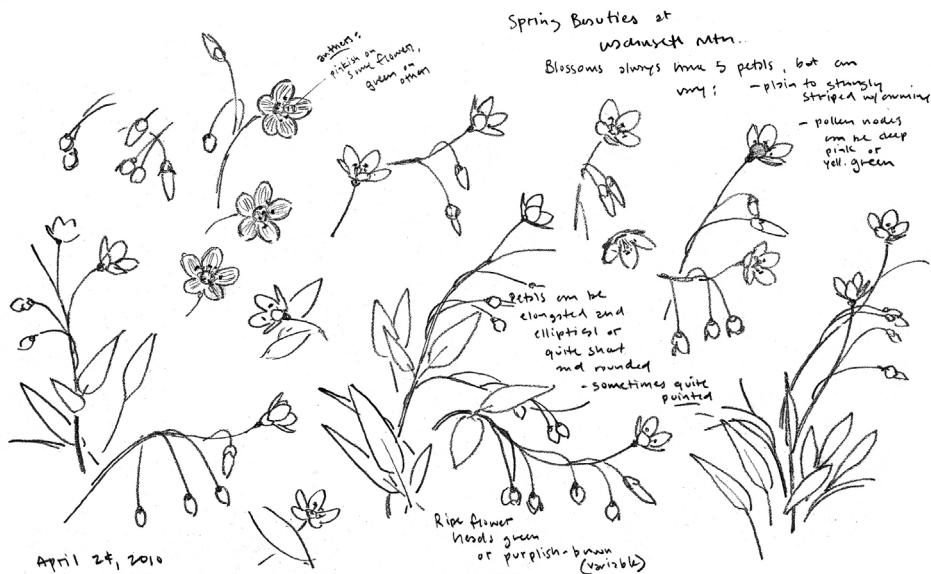 Spring Beauties at
Wachusett Mtn..
Blossoms always have 5 petals, but can
vary: - plain to strongly
striped w/
- pollen nodes
can be deep
pink or
yell. green
anthers:
pinkish on
some flower,
green on
others
- petals can be
elongated and
elliptical or
quite short
and rounded
- sometimes quite
pointed
Ripe flower
heads green
or purplish-brown
(variable)
April 24, 2010